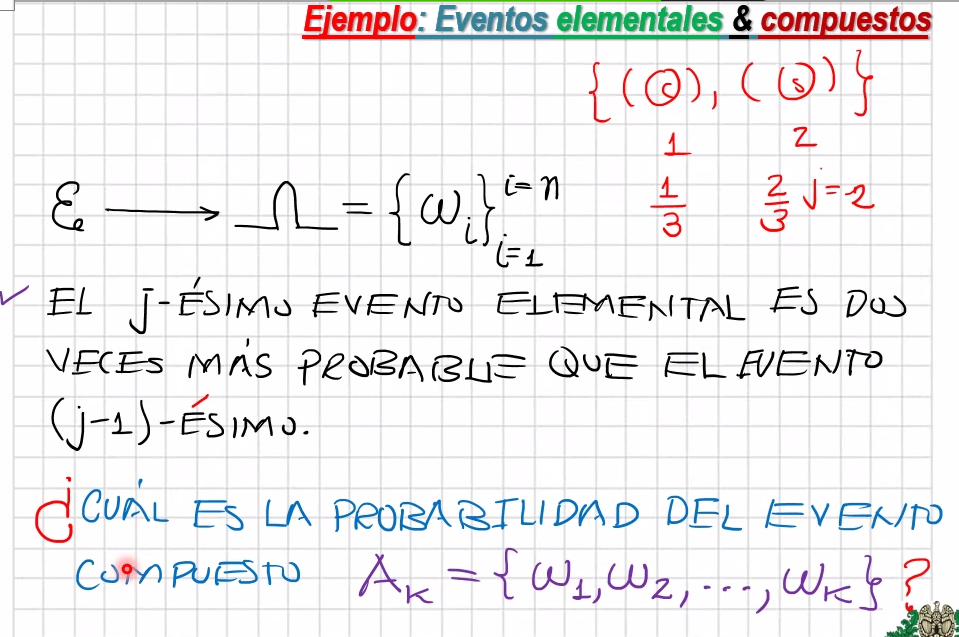 Ejemplo: Eventos elementales & compuestos
{(c), (s)}
1 2
1/3 2/3 j=2
ℰ → Ω = {ω_i}_{i=1}^{i=n}
EL j-ÉSIMO EVENTO ELEMENTAL ES DOS
VECES MÁS PROBABLE QUE EL EVENTO
(j-1)-ÉSIMO.
¿CUÁL ES LA PROBABILIDAD DEL EVENTO
COMPUESTO A_K = {ω_1, ω_2, ..., ω_K} ?